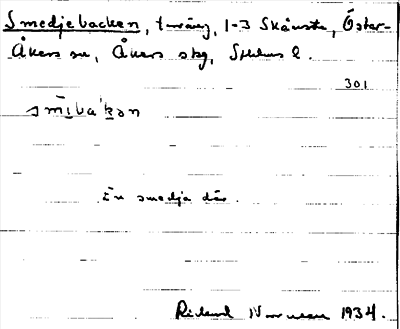 Smedjebacken, t, 1-3 Skånsta, Öster-
Åkers sn, Åkers skg, Sthlms l.
301
smiba'kən
En smedja där.
Rickard 1934.